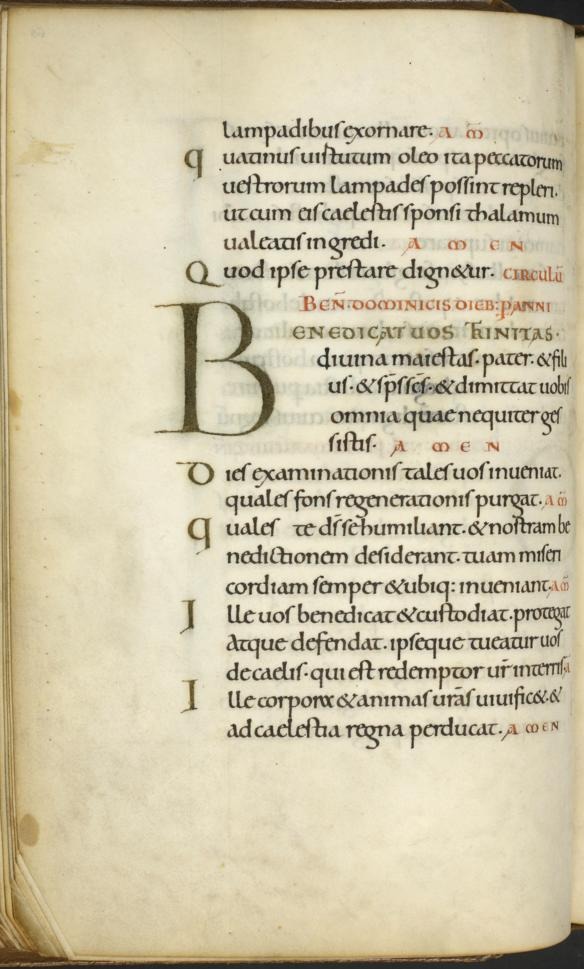 lampadibus exornare. A M̄
quatinus uirtutum oleo ita peccatorum
uestrorum lampades possint repleri.
ut cum eis caelestis sponsi thalamum
ualeatis ingredi. AMEN
Quod ipse prestare dign&ur. CIRCULŪ
BEN̄. DOMINICIS DIEB: P ANNI
BENEDICAT UOS TRINITAS.
diuina maiestas. pater. & fili
us. & sp̄s sc̄s. & dimittat uobis
omnia quae nequiter ges
sistis. AMEN
Dies examinationis tales uos inueniat.
quales fons regenerationis purgat. A M̄
quales te d̄s se humiliant. & nostram be
nedictionem desiderant. tuam miseri
cordiam semper & ubiq: inueniant. A M̄
Ille uos benedicat & custodiat. protegat
Atque defendat. ipseque tueatur uos
de caelis. qui est redemptor ur̄ in terris. A
Ille corpora & animas ur̄as uiuific&. &
ad caelestia regna perducat. AMEN